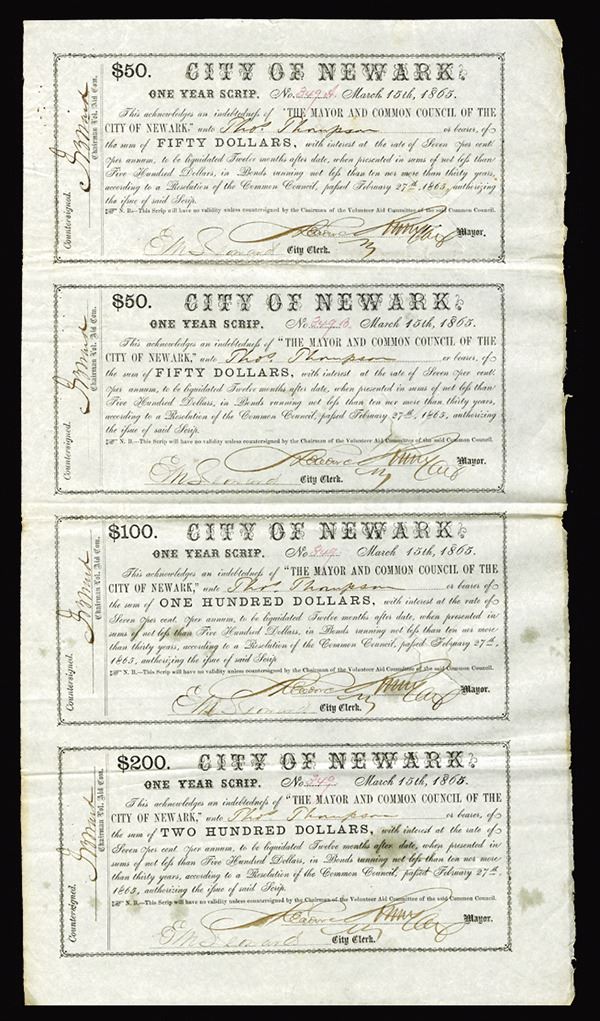 $50. CITY OF NEWARK.
ONE YEAR SCRIP. No. 349 A. March 15th, 1865.
This acknowledges an indebtedness of "THE MAYOR AND COMMON COUNCIL OF THE
CITY OF NEWARK," unto Thos. Thompson or bearer, of
the sum of FIFTY DOLLARS, with interest at the rate of Seven per cent.
per annum, to be liquidated Twelve months after date, when presented in sums of not less than
Five Hundred Dollars, in Bonds running not less than ten nor more than thirty years,
according to a Resolution of the Common Council, passed February 27th, 1865, authorizing
the issue of said Scrip.
N. B.—This Scrip will have no validity unless countersigned by the Chairman of the Volunteer Aid Committee of the said Common Council.
Mayor.
City Clerk.
Countersigned.
Chairman Vol. Aid Com.
$50. CITY OF NEWARK.
ONE YEAR SCRIP. No. 349 B. March 15th, 1865.
This acknowledges an indebtedness of "THE MAYOR AND COMMON COUNCIL OF THE
CITY OF NEWARK," unto Thos. Thompson or bearer, of
the sum of FIFTY DOLLARS, with interest at the rate of Seven per cent.
per annum, to be liquidated Twelve months after date, when presented in sums of not less than
Five Hundred Dollars, in Bonds running not less than ten nor more than thirty years,
according to a Resolution of the Common Council, passed February 27th, 1865, authorizing
the issue of said Scrip.
N. B.—This Scrip will have no validity unless countersigned by the Chairman of the Volunteer Aid Committee of the said Common Council.
Mayor.
City Clerk.
Countersigned.
Chairman Vol. Aid Com.
$100. CITY OF NEWARK.
ONE YEAR SCRIP. No. 349. March 15th, 1865.
This acknowledges an indebtedness of "THE MAYOR AND COMMON COUNCIL OF THE
CITY OF NEWARK," unto Thos. Thompson or bearer, of
the sum of ONE HUNDRED DOLLARS, with interest at the rate of
Seven per cent. per annum, to be liquidated Twelve months after date, when presented in
sums of not less than Five Hundred Dollars, in Bonds running not less than ten nor more
than thirty years, according to a Resolution of the Common Council, passed February 27th,
1865, authorizing the issue of said Scrip.
N. B.—This Scrip will have no validity unless countersigned by the Chairman of the Volunteer Aid Committee of the said Common Council.
Mayor.
City Clerk.
Countersigned.
Chairman Vol. Aid Com.
$200. CITY OF NEWARK.
ONE YEAR SCRIP. No. 349. March 15th, 1865.
This acknowledges an indebtedness of "THE MAYOR AND COMMON COUNCIL OF THE
CITY OF NEWARK," unto Thos. Thompson or bearer, of
the sum of TWO HUNDRED DOLLARS, with interest at the rate of
Seven per cent. per annum, to be liquidated Twelve months after date, when presented in
sums of not less than Five Hundred Dollars, in Bonds running not less than ten nor more
than thirty years, according to a Resolution of the Common Council, passed February 27th,
1865, authorizing the issue of said Scrip.
N. B.—This Scrip will have no validity unless countersigned by the Chairman of the Volunteer Aid Committee of the said Common Council.
Mayor.
City Clerk.
Countersigned.
Chairman Vol. Aid Com.